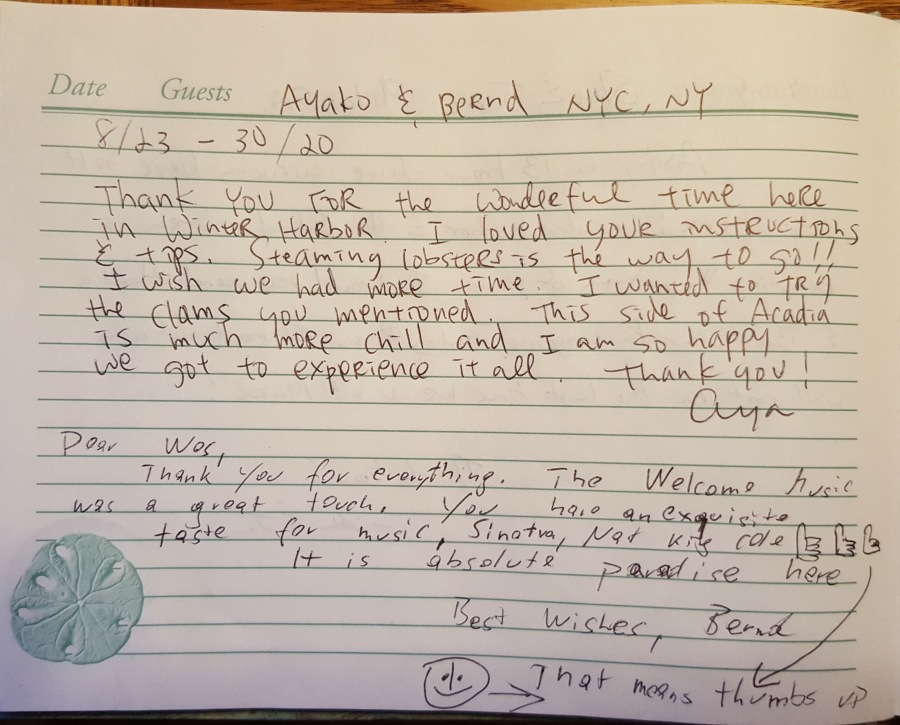 Date Guests Ayako & Bernd NYC, NY
8/23 - 30/20
Thank you for the wonderful time here
in Winter Harbor. I loved your instructions
& tips. Steaming lobsters is the way to go!!
I wish we had more time. I wanted to try
the clams you mentioned. This side of Acadia
is much more chill and I am so happy
we got to experience it all. Thank you!
Aya
Dear Wes,
Thank you for everything. The Welcome music
was a great touch. You have an exquisite
taste for music, Sinatra, Nat King Cole
It is absolute paradise here
Best Wishes, Bernd
That means thumbs up